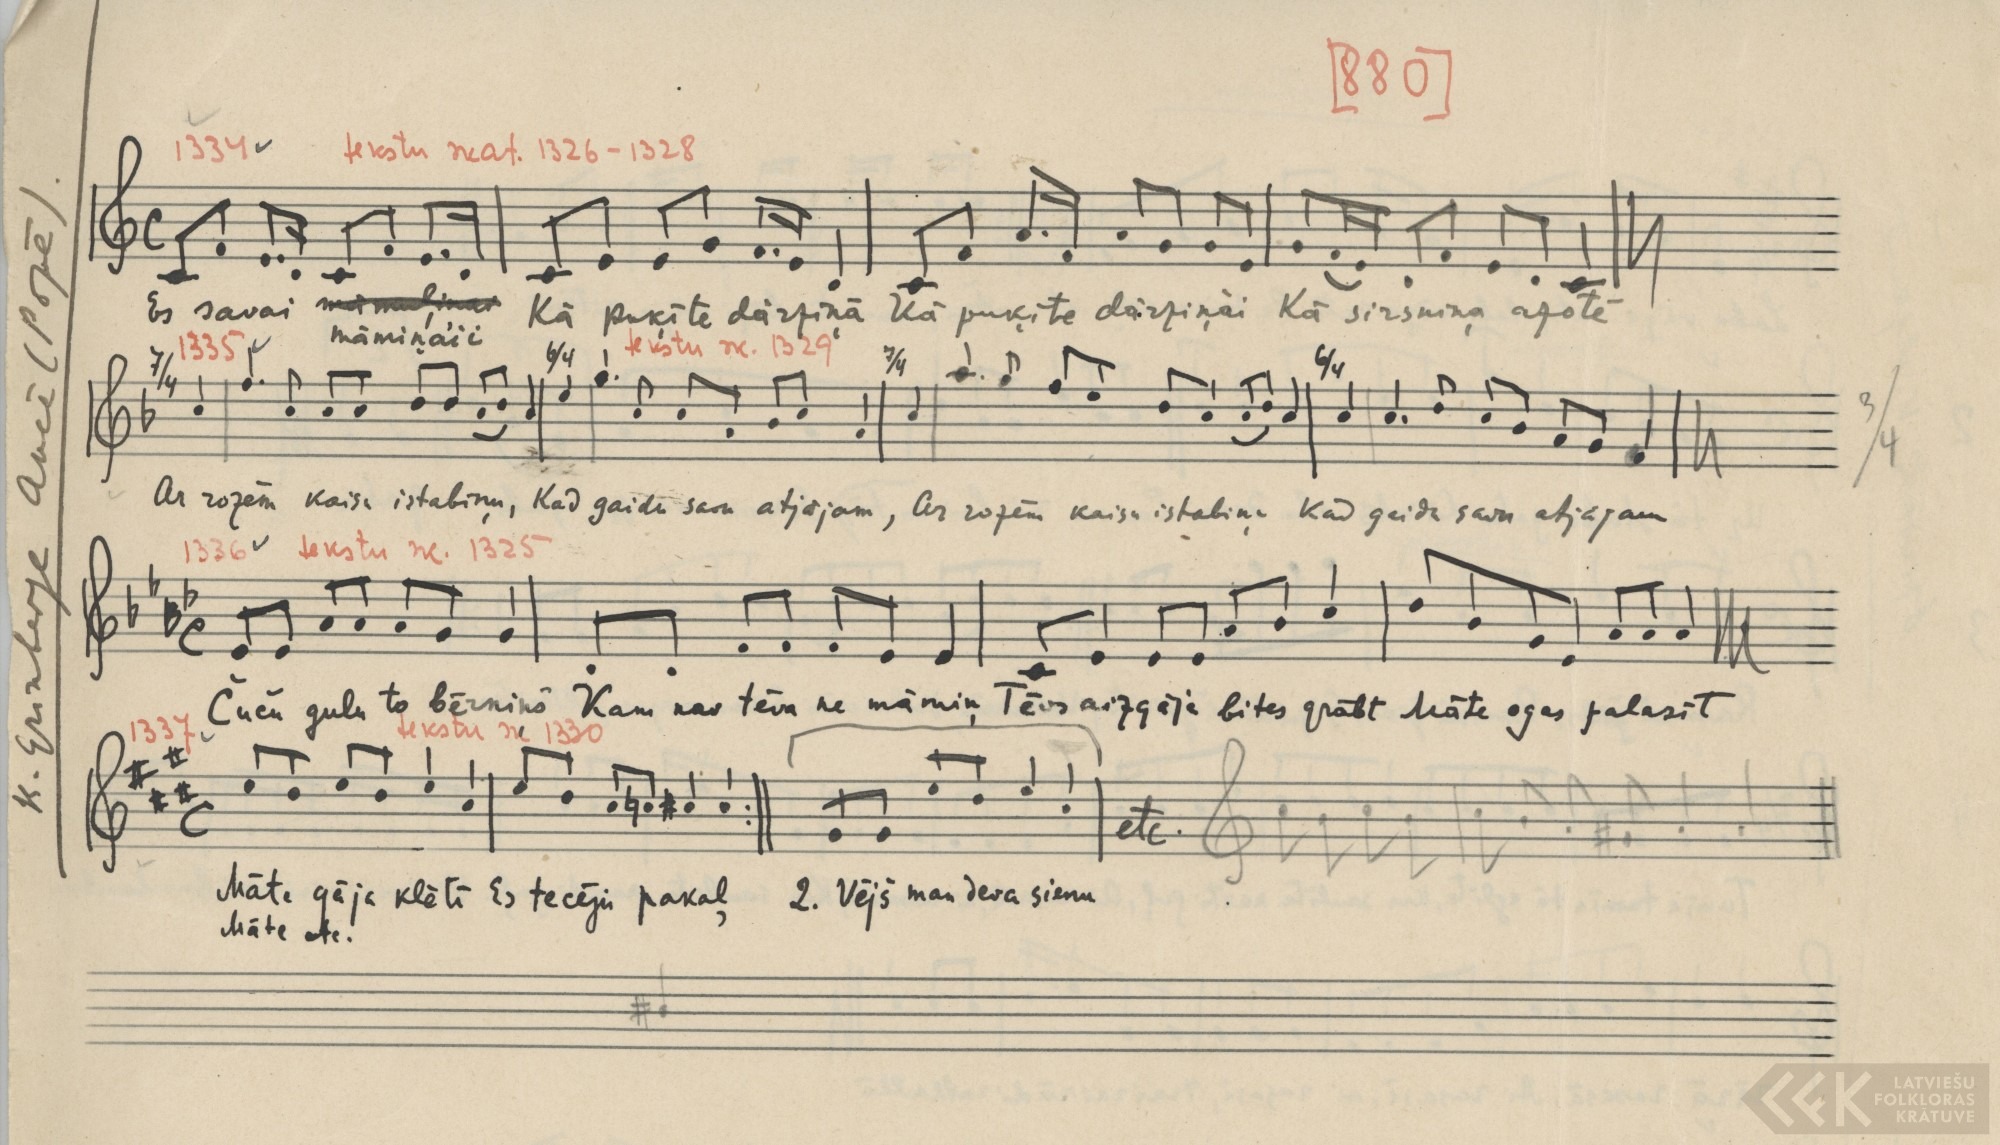 [880]
1334 tekstu skat. 1326-1328
Es savai Kā puķīte dārziņā Kā puķīte dārziņāi Kā sirsniņa azotē
māmiņāii
1335 tekstu sk. 1329
7/4 6/4 7/4 6/4
3/4
Ar rozēm kaisu istabiņu, Kad gaidu savu atjājam, Ar rozēm kaisu istabiņu Kad gaidu savu atjājam
1336 tekstu sk. 1325
Čuču gulu to bērniņš Kam nav tēva ne māmiņ Tēvs aizgāja bites grābt Māte ogas palasīt
1337 tekstu sk 1330
etc.
Māte gāja klētī Es tecēju pakaļ 2. Vējš man deva sienu
Māte etc.
K. Grinberge Ancē (Popē).
LATVIEŠU
FOLKLORAS
KRĀTUVE